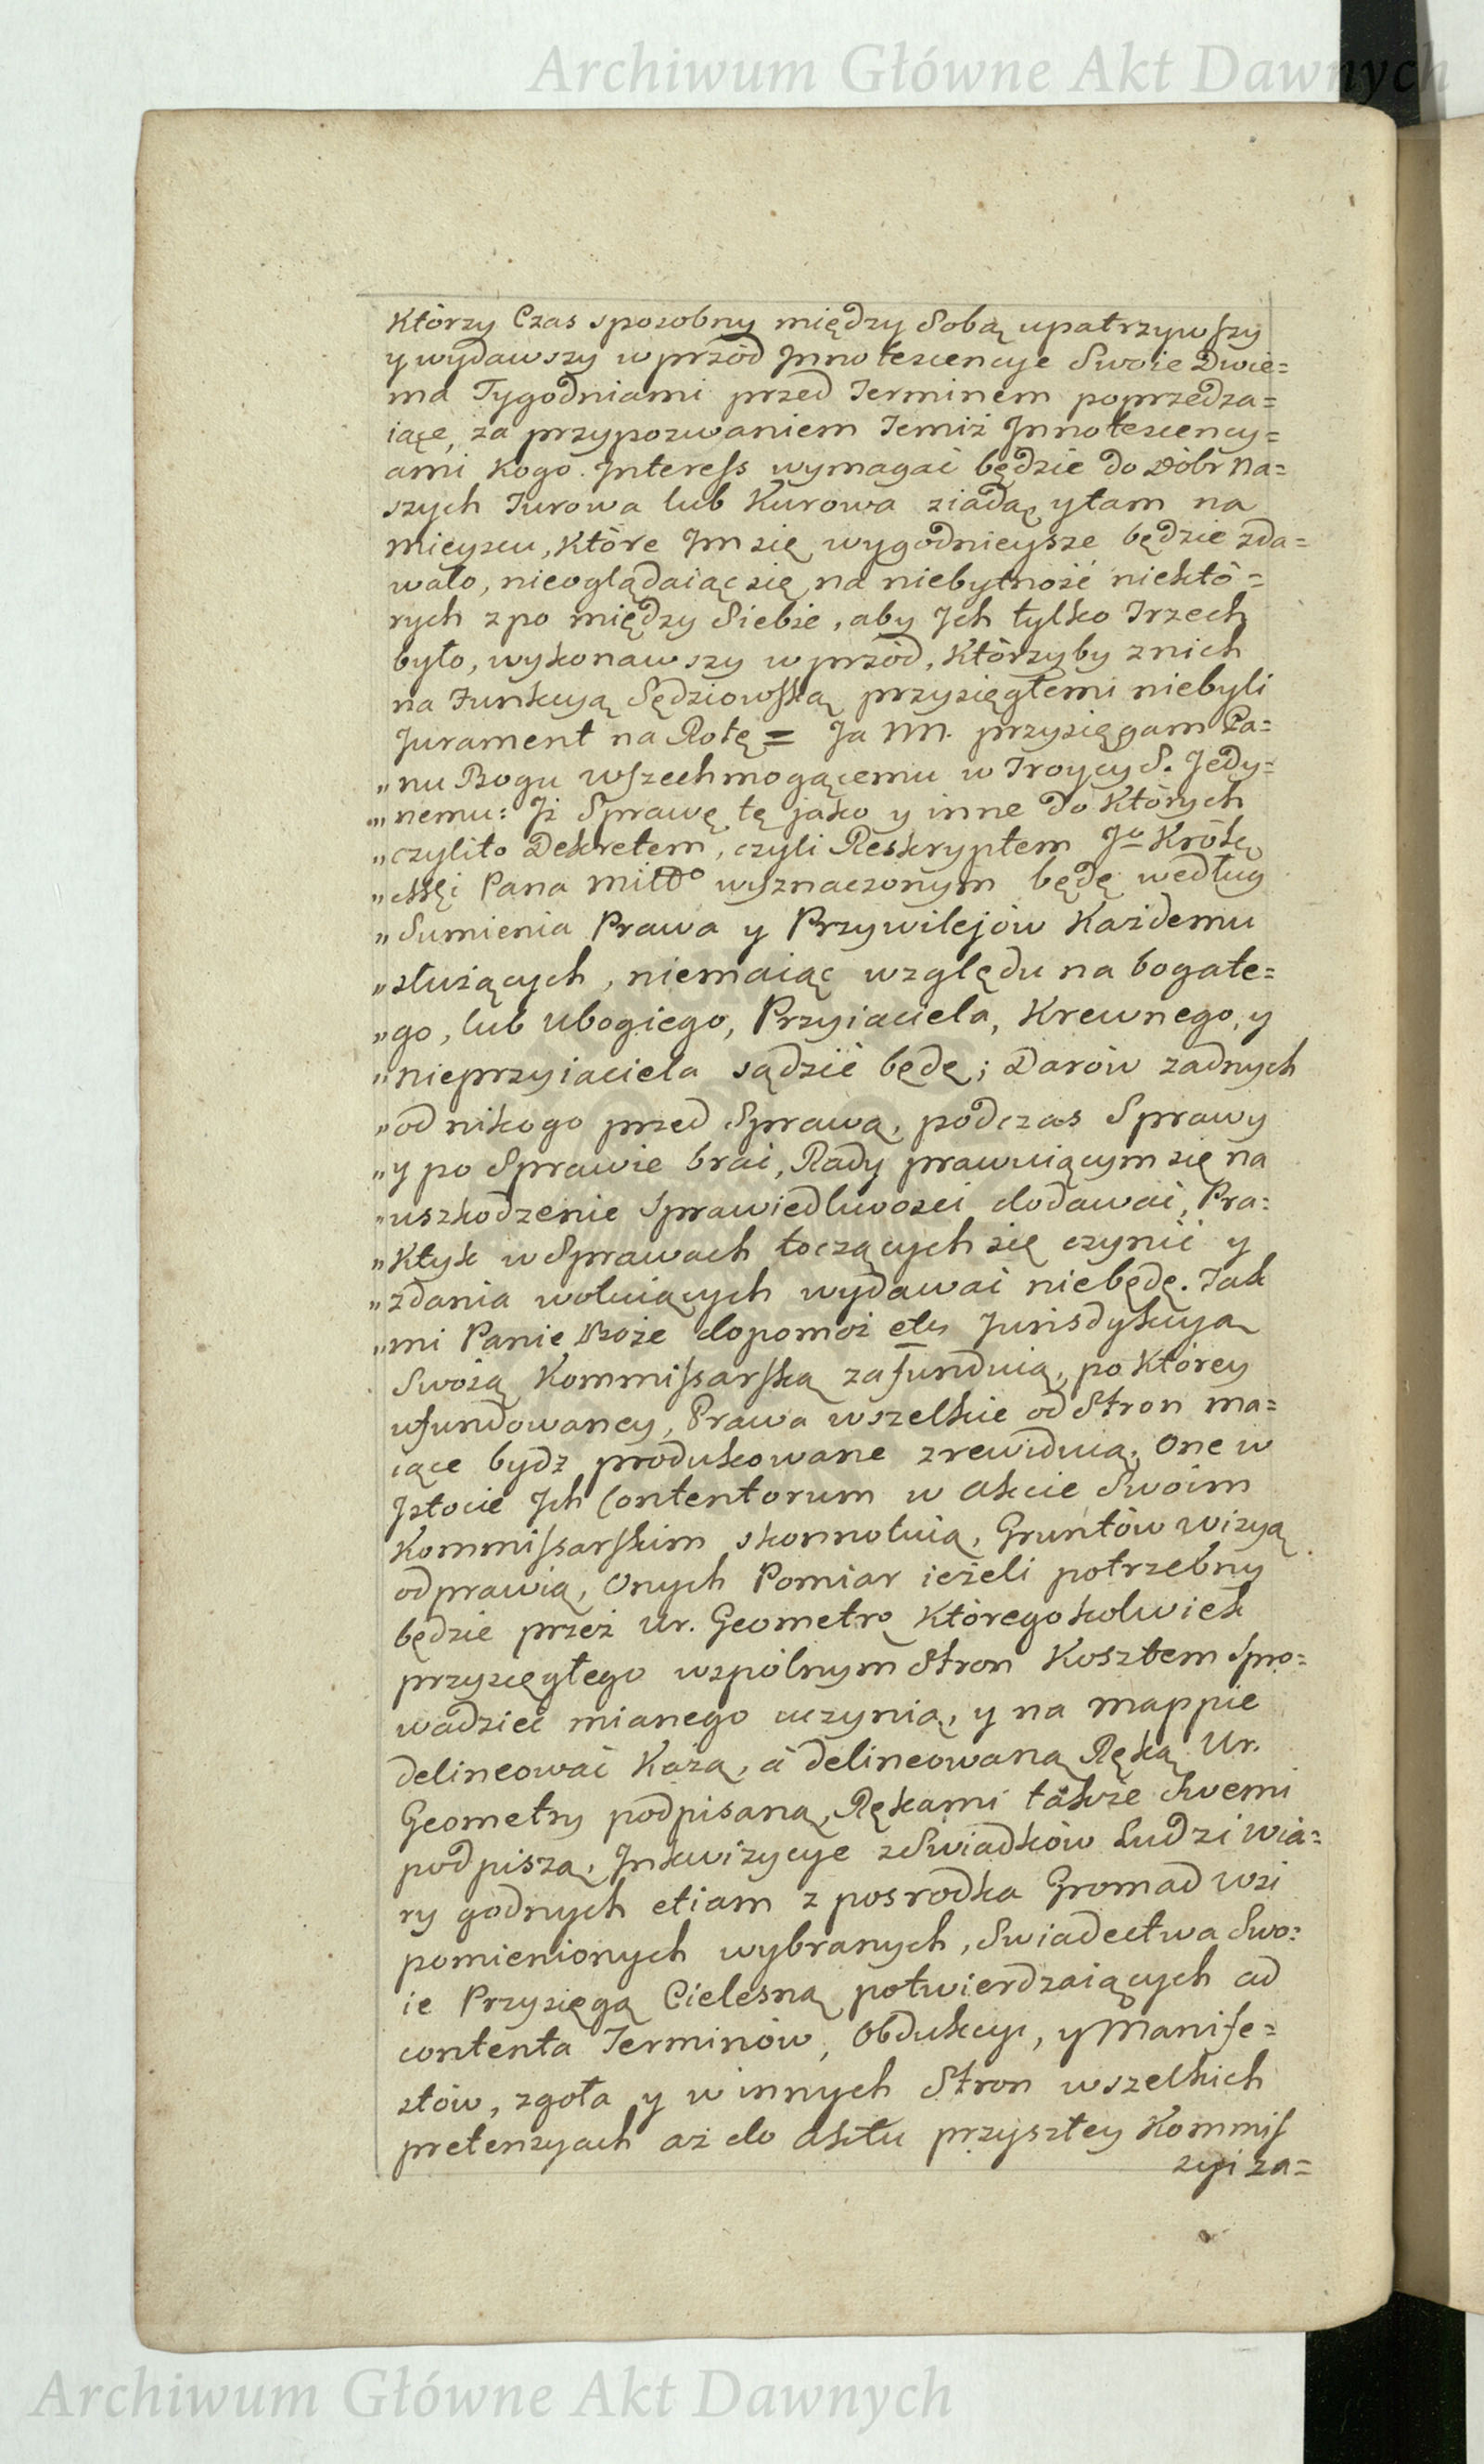 Archiwum Główne Akt Dawnych
Którzy Czas sposobny między Sobą upatrzywszy
y wydawszy wprzód Innotescencye Swoie Dwie=
ma Tygodniami przed Terminem poprzedza=
iące, za przypozwaniem Temiż Innotescency=
ami kogo Interess wymagać będzie do Dóbr Na=
szych Turowa lub Kurowa ziadą, y tam na
mieyscu, Które Im się wygodnieysze będzie zda=
wało, nieoglądaiąc się na niebytność niektó=
rych z po między Siebie, aby Ich tylko Trzech
było, wykonawszy wprzód, Którzyby z nich
na Funkcyą Sędziowską przysięgłemi niebyli
Jurament na Rotę = Ja NN. przysięgam Pa=
„nu Bogu wszechmogącemu w Troycy S. Jedy=
„nemu: Iż Sprawę tę jako y inne do Których
„czylito Dekretem, czyli Reskryptem Jo Królew
„skiej Pana Miłgo wyznaczonym będę według
„Sumienia Prawa y Przywilejów Każdemu
„służących, niemaiąc względu na bogate=
„go, lub ubogiego, Przyiaciela, Krewnego, y
„nieprzyiaciela sądzić będę; Darów żadnych
„od nikogo przed Sprawą, podczas Sprawy
„y po Sprawie brać, Rady prawuiącym się na
„uszkodzenie Sprawiedliwości dodawać, Pra=
„ktyk w Sprawach toczących się czynić y
„zdania wotuiących wydawać niebędę. Tak
„mi Panie Boże dopomoż etc Jurisdykcyą
Swoią Kommissarską zafunduią, po Którey
ufundowaney, Prawa wszelkie od Stron ma=
iące bydź produkowane zrewiduią, One w
Istocie Ich Contentorum w Akcie Swoim
Kommissarskim skonnotuią, Gruntów wizyą
odprawią, Onych Pomiar ieżeli potrzebny
będzie przez Ur. Geometrę Któregokolwiek
przysięgłego wspólnym Stron Kosztem spro=
wadzieć mianego uczynią, y na mappie
delineować Każą, á delineowaną Ręką Ur.
Geometry podpisaną, Rękami także Swemi
podpiszą, Inkwizycye z Swiadków Ludzi wia=
ry godnych etiam z posrodka Gromad wsi
pomienionych wybranych, Swiadectwa Swo=
ie Przysięgą Cielesną potwierdzaiących ad
contenta Terminów, Obdukcyi, y Manife=
stów, zgoła y w innych Stron wszelkich
pretensyach aż do Aktu przyszłey Kommis
syi za=
Archiwum Główne Akt Dawnych